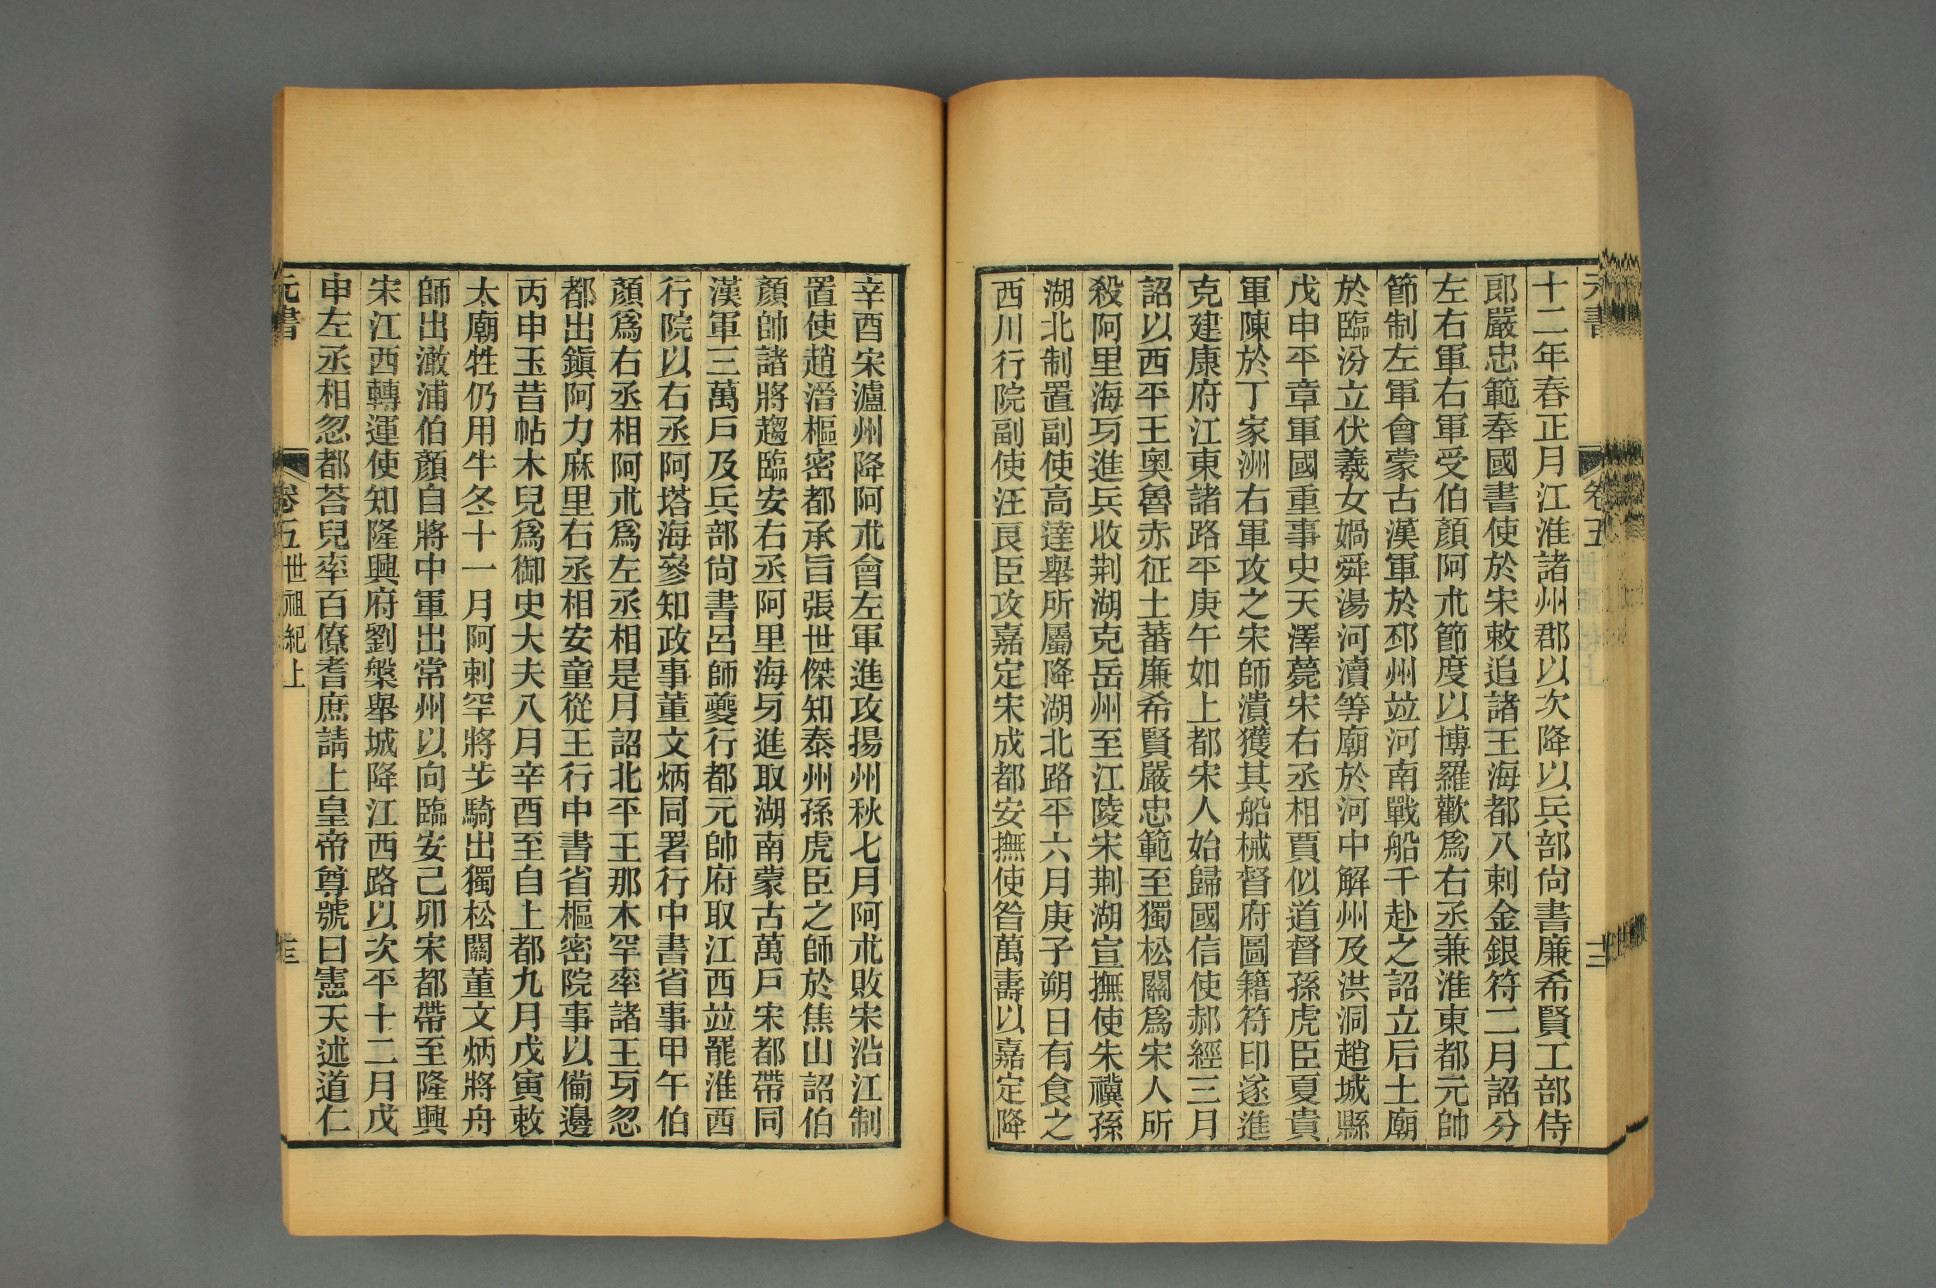 十二年春正月江淮諸州郡以次降以兵部尙書廉希賢工部侍
郞嚴忠範奉國書使於宋敕追諸王海都八剌金銀符二月詔分
左右軍右軍受伯顏阿朮節度以博羅歡爲右丞兼淮東都元帥
節制左軍會蒙古漢軍於邳州竝河南戰船千赴之詔立后土廟
於臨汾立伏羲女媧舜湯河瀆等廟於河中解州及洪洞趙城縣
戊申平章軍國重事史天澤薨宋右丞相賈似道督孫虎臣夏貴
軍陳於丁家洲右軍攻之宋師潰獲其船械督府圖籍符印遂進
克建康府江東諸路平庚午如上都宋人始歸國信使郝經三月
詔以西平王奧魯赤征土蕃廉希賢嚴忠範至獨松關爲宋人所
殺阿里海牙進兵收荆湖克岳州至江陵宋荆湖宣撫使朱禩孫
湖北制置副使高達舉所屬降湖北路平六月庚子朔日有食之
西川行院副使汪良臣攻嘉定宋成都安撫使昝萬壽以嘉定降
元書
卷五
辛酉宋瀘州降阿朮會左軍進攻揚州秋七月阿朮敗宋沿江制
置使趙溍樞密都承旨張世傑知泰州孫虎臣之師於焦山詔伯
顏帥諸將趨臨安右丞阿里海牙進取湖南蒙古萬戶宋都帶同
漢軍三萬戶及兵部尙書呂師夔行都元帥府取江西竝罷淮西
行院以右丞阿塔海參知政事董文炳同署行中書省事甲午伯
顏爲右丞相阿朮爲左丞相是月詔北平王那木罕率諸王牙忽
都出鎭阿力麻里右丞相安童從王行中書省樞密院事以備邊
丙申玉昔帖木兒爲御史大夫八月辛酉至自上都九月戊寅敕
太廟牲仍用牛冬十一月阿剌罕將步騎出獨松關董文炳將舟
師出澉浦伯顏自將中軍出常州以向臨安己卯宋都帶至隆興
宋江西轉運使知隆興府劉槃舉城降江西路以次平十二月戊
申左丞相忽都荅兒率百僚耆庶請上皇帝尊號曰憲天述道仁
元書
卷五世祖紀上